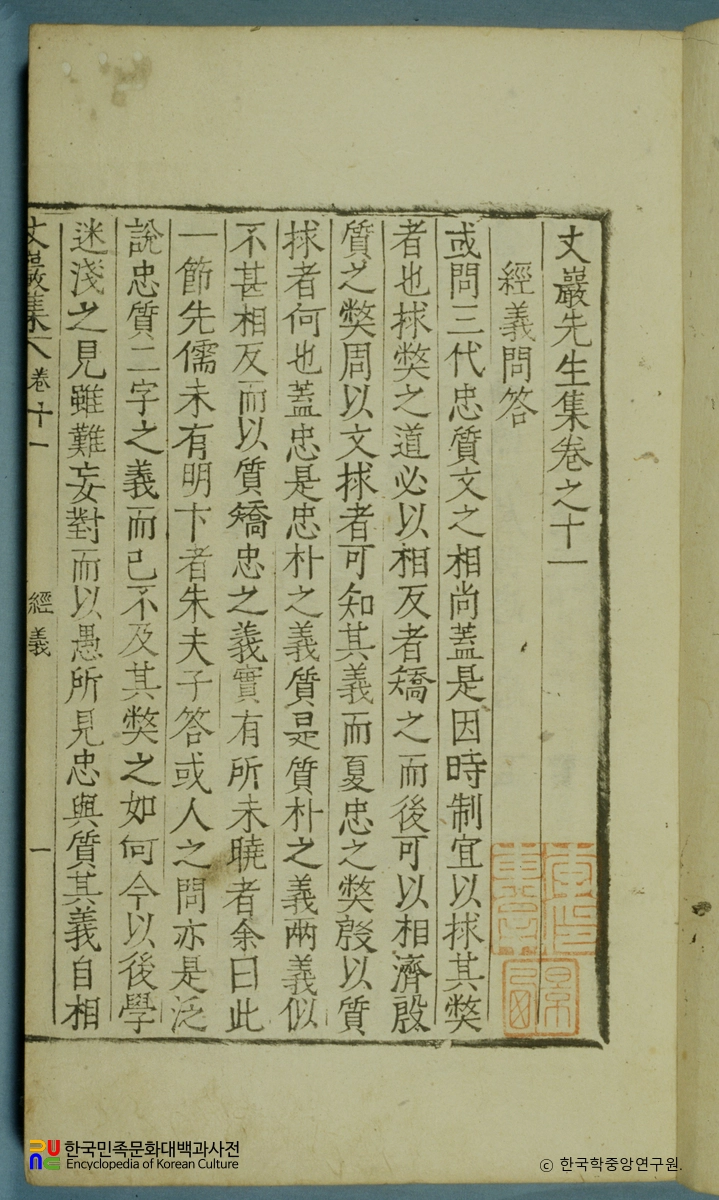 丈巖先生集卷之十一
經義問答
或問三代忠質文之相尚蓋是因時制宜以捄其獘
者也捄獘之道必以相反者矯之而後可以相濟殷
質之獘周以文捄者可知其義而夏忠之獘殷以質
捄者何也蓋忠是忠朴之義質是質朴之義兩義似
不甚相反而以質矯忠之義實有所未曉者余曰此
一節先儒未有明卞者朱夫子答或人之問亦是泛
說忠質二字之義而已不及其獘之如何今以後學
迷淺之見雖難妄對而以愚所見忠與質其義自相
丈巖集 卷十一 經義 一
한국민족문화대백과사전
Encyclopedia of Korean Culture
© 한국학중앙연구원.